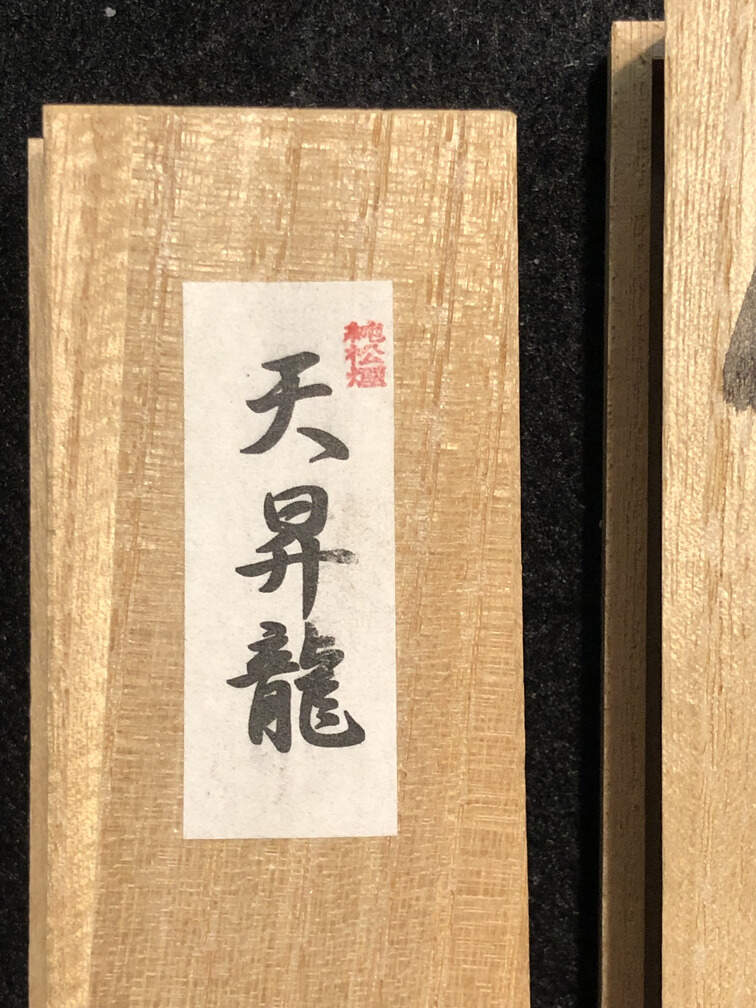 純松煙
天昇龍